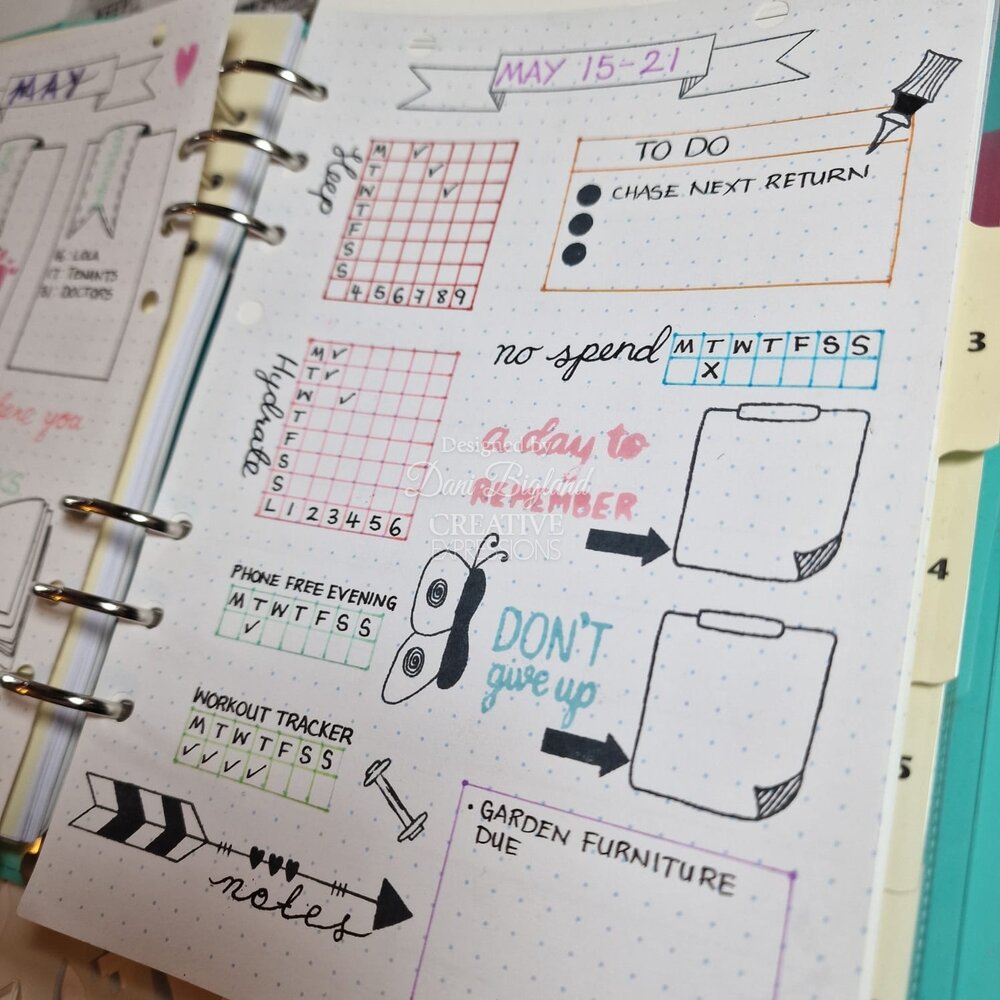 MAY
16: LOLA
17: TENANTS
ere you
MAY 15-21
Sleep
M ✓
T ✓
W ✓
T
F
S
S
4 5 6 7 8 9
TO DO
CHASE NEXT RETURN
no spend
M T W T F S S
X
Hydrate
M ✓
T ✓
W ✓
T
F
S
S
L 1 2 3 4 5 6
a day to
REMEMBER
Designed by
Dani Bigland
CREATIVE
EXPRESSIONS
PHONE FREE EVENING
M T W T F S S
✓
DON'T
give up
WORKOUT TRACKER
M T W T F S S
✓ ✓ ✓ ✓
notes
· GARDEN FURNITURE
DUE
3
4
5